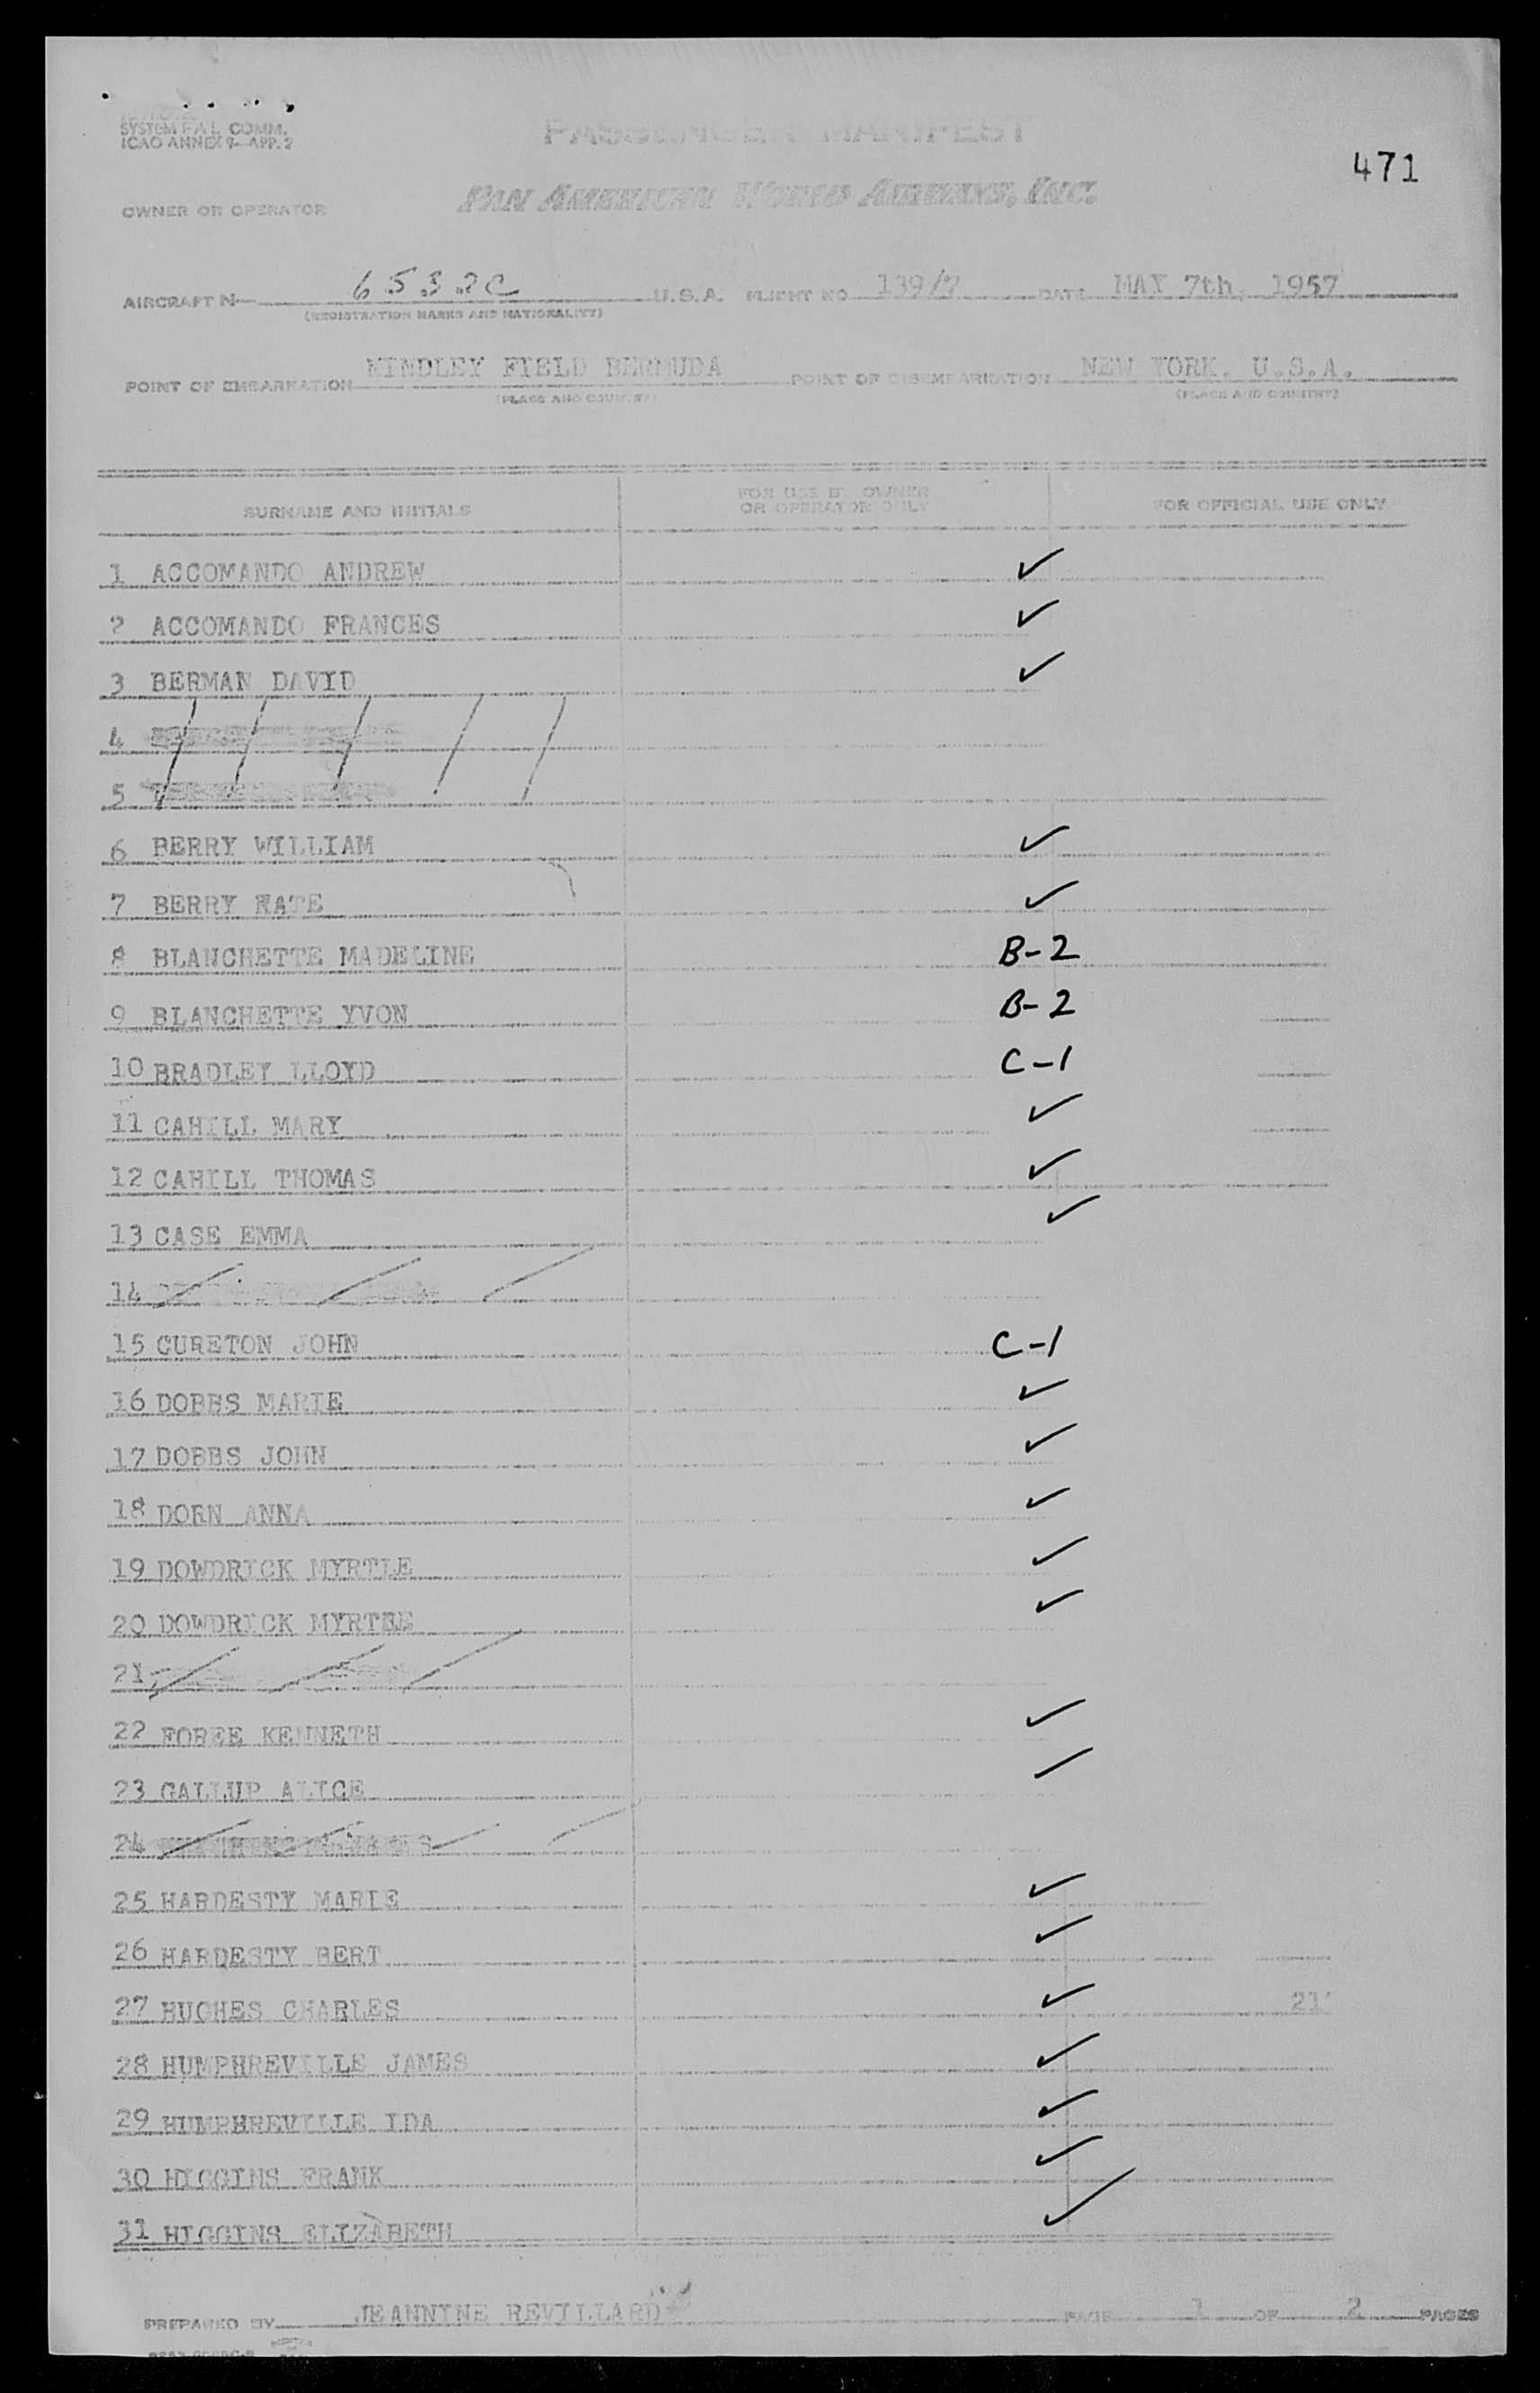 SYSTEM F.A.L. COMM.
ICAO ANNEX 9-APP. 2
PASSENGER MANIFEST
471
OWNER OR OPERATOR
PAN AMERICAN WORLD AIRWAYS, INC.
AIRCRAFT N 6532C U.S.A. FLIGHT NO 139/7 DATE MAY 7th, 1957
(REGISTRATION MARKS AND NATIONALITY)
POINT OF EMBARKATION KINDLEY FIELD BERMUDA POINT OF DISEMBARKATION NEW YORK. U.S.A.
(PLACE AND COUNTRY) (PLACE AND COUNTRY)
SURNAME AND INITIALS FOR USE BY OWNER OR OPERATOR ONLY FOR OFFICIAL USE ONLY
1 ACCOMANDO ANDREW ✓
2 ACCOMANDO FRANCES ✓
3 BERMAN DAVID ✓
4
5
6 BERRY WILLIAM ✓
7 BERRY KATE ✓
8 BLANCHETTE MADELINE B-2
9 BLANCHETTE YVON B-2
10 BRADLEY LLOYD C-1
11 CAHILL MARY ✓
12 CAHILL THOMAS ✓
13 CASE EMMA ✓
14
15 CURETON JOHN C-1
16 DOBBS MARIE ✓
17 DOBBS JOHN ✓
18 DORN ANNA ✓
19 DOWDRICK MYRTLE ✓
20 DOWDRICK MYRTEE ✓
21
22 FOREE KENNETH ✓
23 GALLUP ALICE ✓
24
25 HARDESTY MARIE ✓
26 HARDESTY BERT ✓
27 HUGHES CHARLES ✓ 21
28 HUMPHREVILLE JAMES ✓
29 HUMPHREVILLE IDA ✓
30 HIGGINS FRANK ✓
31 HIGGINS ELIZABETH ✓
PREPARED BY JEANNINE REVILLARD PAGE 1 OF 2 PAGES